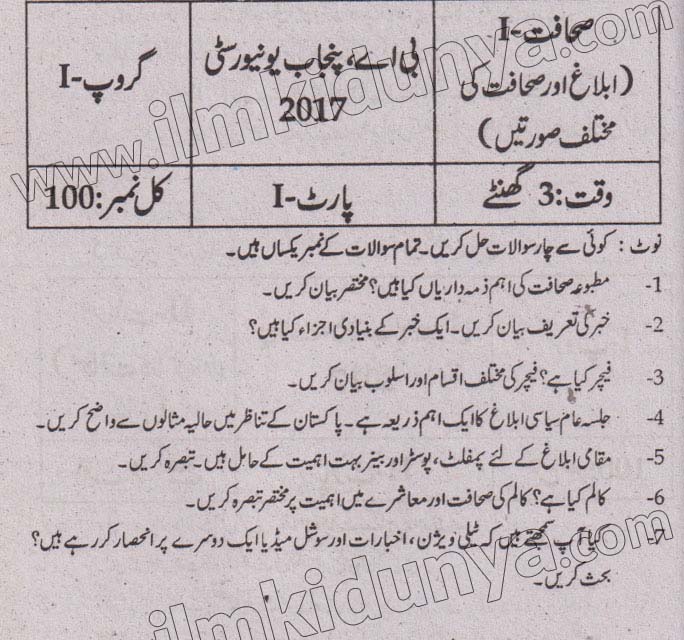 صحافت-I
(ابلاغ اور صحافت کی
مختلف صورتیں)
بی اے، پنجاب یونیورسٹی
2017
گروپ-I
وقت: 3 گھنٹے
پارٹ-I
کل نمبر: 100
نوٹ: کوئی سے چار سوالات حل کریں۔ تمام سوالات کے نمبر یکساں ہیں۔
1- مطبوعہ صحافت کی اہم ذمہ داریاں کیا ہیں؟ مختصر بیان کریں۔
2- خبر کی تعریف بیان کریں۔ ایک خبر کے بنیادی اجزاء کیا ہیں؟
3- فیچر کیا ہے؟ فیچر کی مختلف اقسام اور اسلوب بیان کریں۔
4- جلسہ عام سیاسی ابلاغ کا ایک اہم ذریعہ ہے۔ پاکستان کے تناظر میں حالیہ مثالوں سے واضح کریں۔
5- مقامی ابلاغ کے لئے پمفلٹ، پوسٹر اور بینر بہت اہمیت کے حامل ہیں۔ تبصرہ کریں۔
6- کالم کیا ہے؟ کالم کی صحافت اور معاشرے میں اہمیت پر مختصر تبصرہ کریں۔
7- کیا آپ سمجھتے ہیں کہ ٹیلی ویژن، اخبارات اور سوشل میڈیا ایک دوسرے پر انحصار کر رہے ہیں؟
بحث کریں۔
www.ilmkidunya.com
ilmkidunya.com